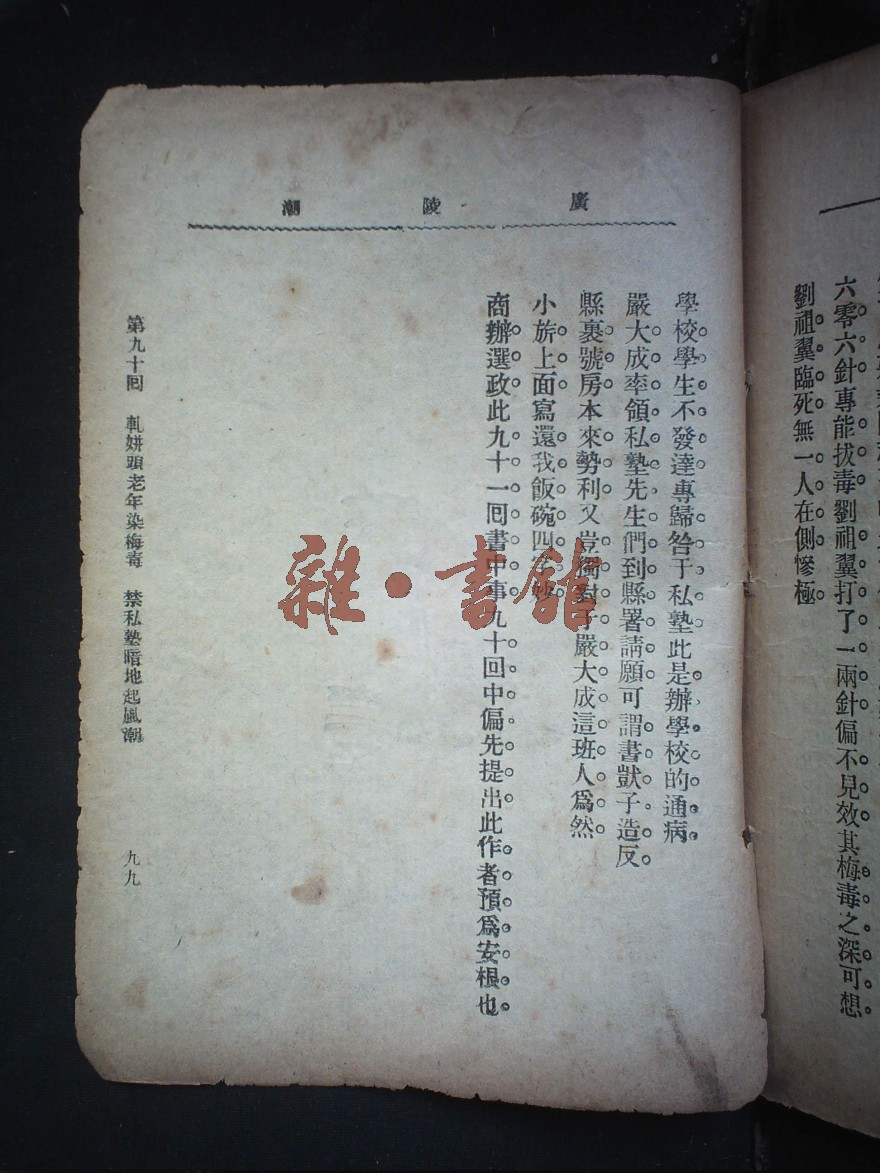 六零六針專能拔毒劉祖翼打了一兩針偏不見效其梅毒之深可想
劉祖翼臨死無一人在側慘極
廣陵潮
學校學生不發達專歸咎于私塾此是辦學校的通病
嚴大成率領私塾先生們到縣署請願可謂書獃子造反
縣裏號房本來勢利又豈獨對于嚴大成這班人爲然
小旂上面寫還我飯碗四字妙
商辦選政此九十一囘書中事九十回中偏先提出此作者預爲安根也
第九十囘 軋姘頭老年染梅毒 禁私塾暗地起風潮
九九
雜·書館